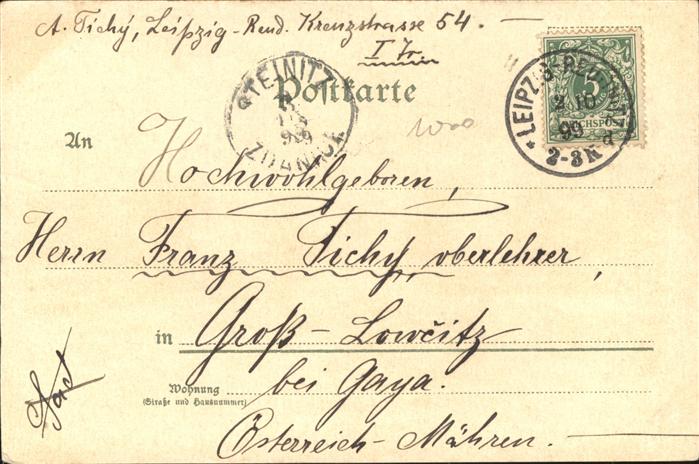 A. Tichý, Leipzig-Reud. Kreuzstrasse 54. —
I Tr.
Postkarte
STEINITZ
99
ZDANICE
LEIPZIG-REUDNITZ
2 10
99
2-3N
d
5
REICHSPOST
An
Hochwohlgeboren,
Herrn Franz Tichý oberlehrer,
in Groß-Lowčitz
Wohnung
(Straße und Hausnummer)
bei Gaya.
Österreich-Mähren. —